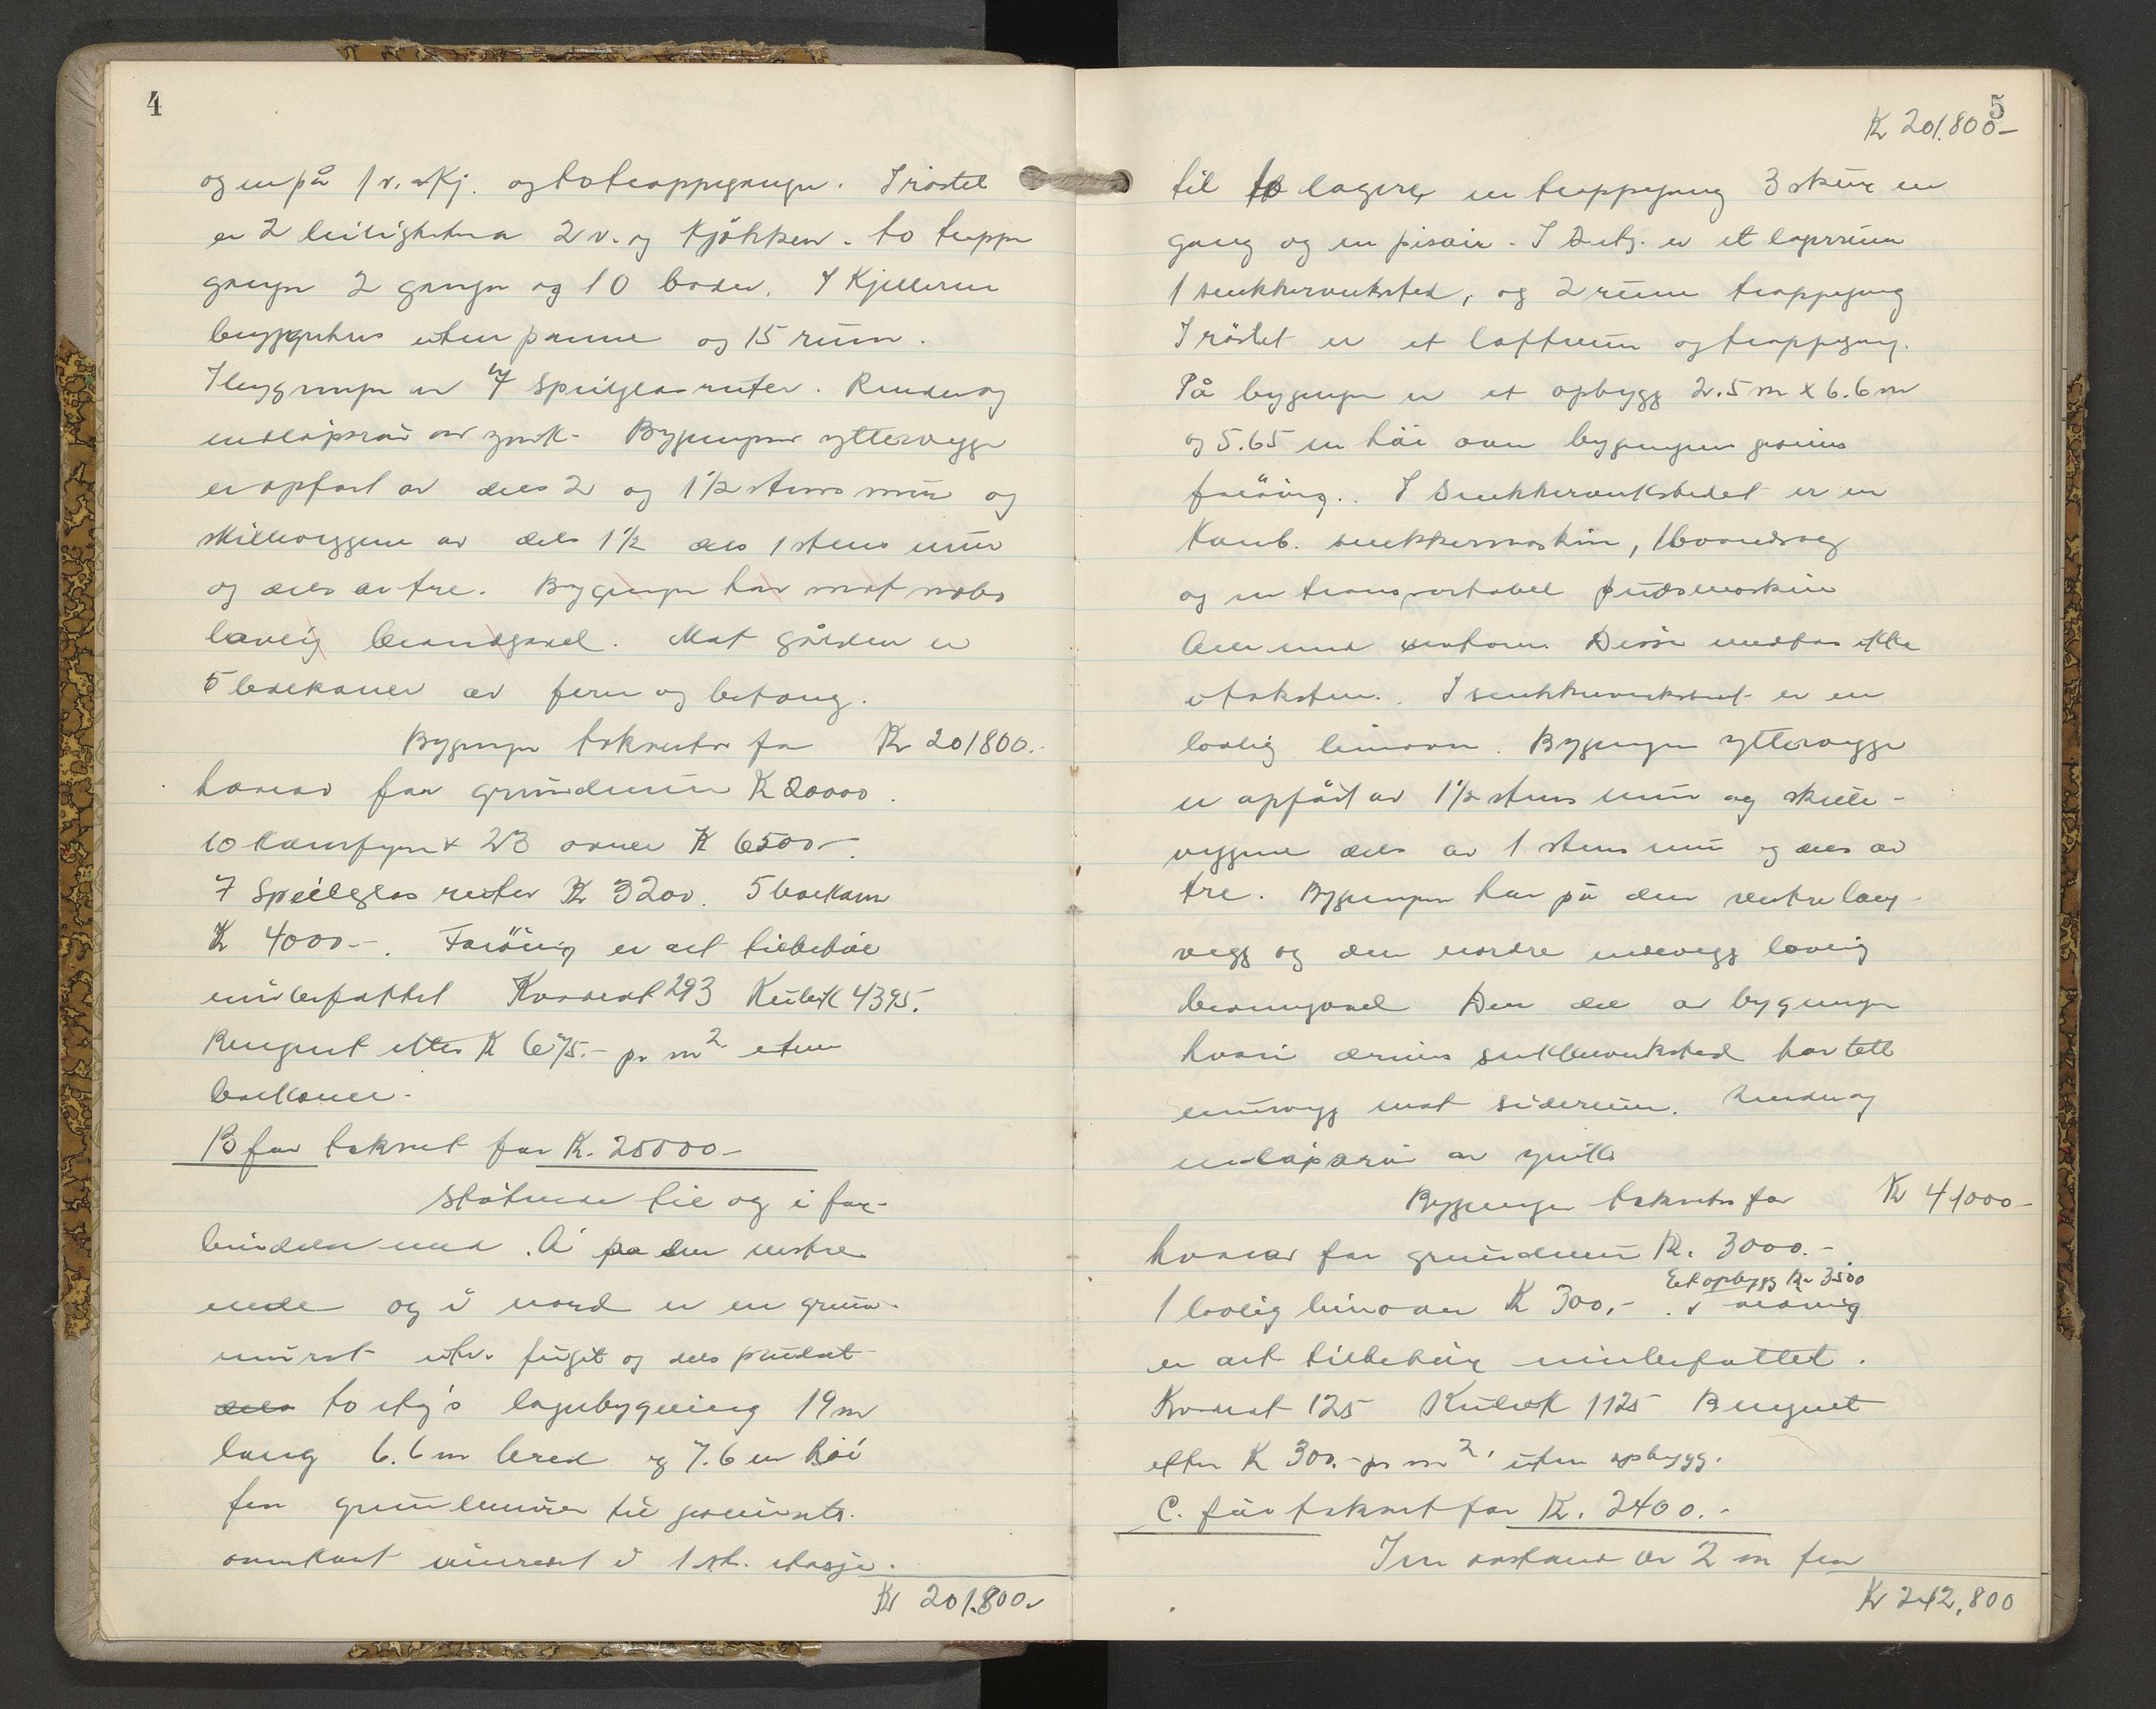 4
og en på 1 v. & Kj. og to trappeganger. I røstet
er 2 leiligheter a 2 v. og Kjøkken. to trappe
ganger 2 ganger og 10 boder. I Kjelleren
bryggerhus uten panne og 15 rum.
I bygningen er 7 speilglasruter. Render og
nedløpsrør av zink. Bygningens yttervegger
er opført av dels 2 og 1½ stens mur og
skilleveggene av dels 1½ dels 1 stens mur
og dels av tre. Bygningen har mot nabo
lovlig brandgavl. Mot gården er
5 balkonger av jern og betong.
Bygningen taksertes for Kr 201800.-
hvorav for grundmur K 20000.
10 komfyrer & 23 ovner K 6500.-
7 Speilglas ruter Kr 3200. 5 balkong
K 4000.-. Forøvrig er alt tilbehør
innbefattet Kvadrat 293 Kubik 4395.
Beregnet etter K 675.- pr m² uten
balkonger.
B før taksert for K. 25000-
Støtende til og i for-
bindelse med A på den vestre
ende og i nord er en grund-
muret utv. fuget og dels pudset
to etg's lagerbygning 19 m
lang 6.6 m bred og 7.6 m høi
fra grundmuren til gesimsets
overkant innredet i 1ste etasje.
Kr 201.800.-
5
Kr 201.800-
til to lagere en trappegang 3 skur en
gang og en pisoir. I 2 etg. er et lagerrum
1 snekkerverksted, og 2 rum trappegang
I røstet er et loftrum og trappegang.
På bygningen er et opbygg 2.5 m x 6.6 m
og 5.65 m høi over bygningens gesims
forøvrig. I Snekkerverkstedet er en
Komb. snekkermaskin, 1 båndsag
og en transportabel pudsmaskin
Alle med motorer. Disse medtas ikke
i taksten. I snekkerverkstedet er en
lovlig limovn. Bygningens yttervegger
er opført av 1½ stens mur og skille-
veggene dels av 1 stens mur og dels av
tre. Bygningen har på den vestre lang-
vegg og den nordre endevegg lovlig
branngavl Den del av bygningen
hvori drives snekkerverksted har tett
murvegg mot siderum. Render og
nedløpsrør av zink
Bygningen taksertes for Kr 41000-
hvorav for grundmur Kr. 3000.-
Et opbygg Kr 3500
1 lovlig limovn K 300.- forøvrig
er alt tilbehør innbefattet.
Kvadrat 125 Kubik 1125 Beregnet
efter K 300.- pr m² uten opbygg.
C. før taksert for Kr. 2400.-
I en avstand av 2 m fra
Kr 242,800